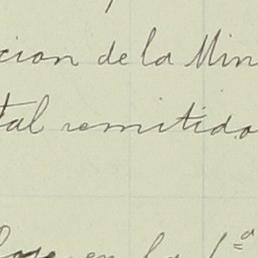 cion de la Min
tal remitido
en la 1ª